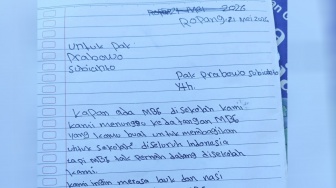 2026
Popang, 21 Mei 2026
Untuk pak
Prabowo
subianto
Pak Prabowo subianto
Yth.
Kapan ada MBG disekolah kami
kami menunggu kedatangan MBG
yang kamu buat untuk membagikan
untuk sekolah diseluruh Indonesia
tapi MBG tak pernah datang disekolah
kami.
kami ingin merasa lauk dan nasi